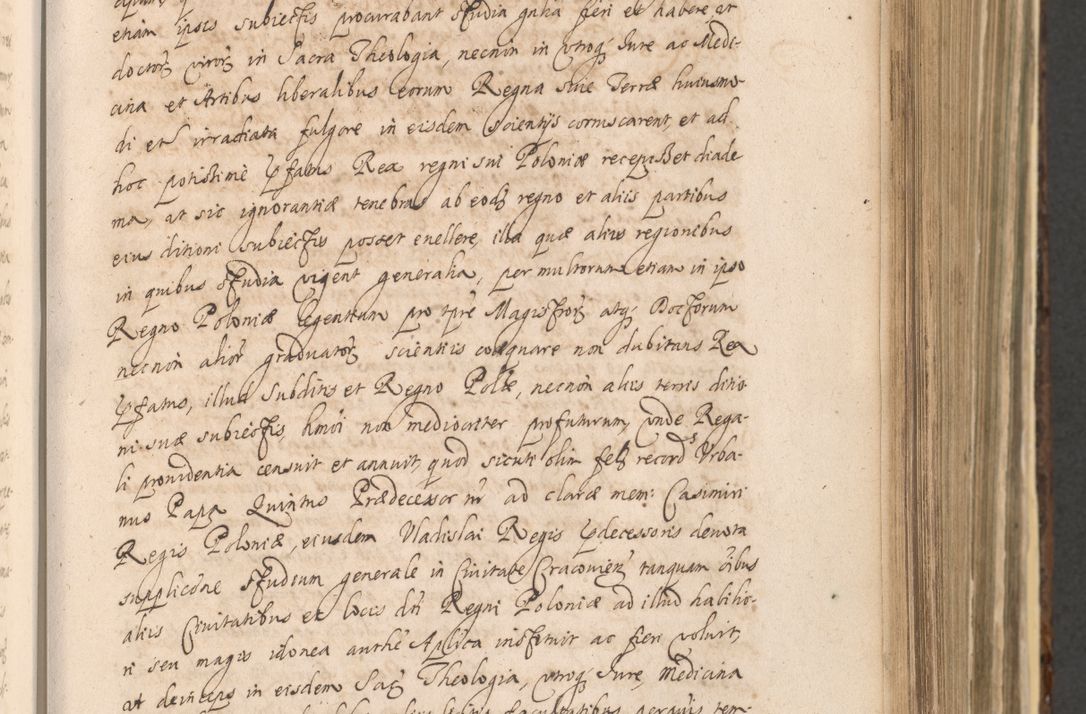 etiam ipsis subiectis procurabant studia gnlia fieri et habere ut
doctorz virorz in Sacra Theologia, necnon in utroqz Iure ac Medi-
cina et Artibus liberalibus eorum Regna siue Terræ huiusmo-
di et irradiata fulgore in eisdem Scientijs coruscarent, et ad
hoc potissimè pfatus Rex regni sui Poloniæ recepisset diade
ma, ut sic ignorantiæ tenebras ab eodz regno et aliis partibus
eius ditioni subiectis posset euellere, illa quæ aliis regionibus
in quibus studia vigent generalia, per multorum etiam in ipso
Regno Poloniæ legentium pro tpre Magistrorz atqz Doctorum
necnon aliorz graduatorz scientiis coæquare non dubitans Rex
pfatus, illud Subditis et Regno Polæ, necnon aliis terris ditio
ni suæ subiectis, hmoi non mediocriter profuturum, unde Rega-
li prouidentia censuit et annuit, quod sicuti olim felz recordis Vrba-
nus Papa Quintus Prædecessor nr ad claræ mem: Casimiri
Regis Poloniæ, eiusdem Vladislai Regis pdecessoris deuota
supplicõne studium generale in Ciuitate Cracouienz tanquam õibus
aliis Ciuitatibus et locis dti Regni Poloniæ ad illud habilio-
ri seu magis idonea authẽ Aplica instituit ac fieri voluit,
ut deinceps in eisdem Sacz Theologia, utroqz Iure, Medicina